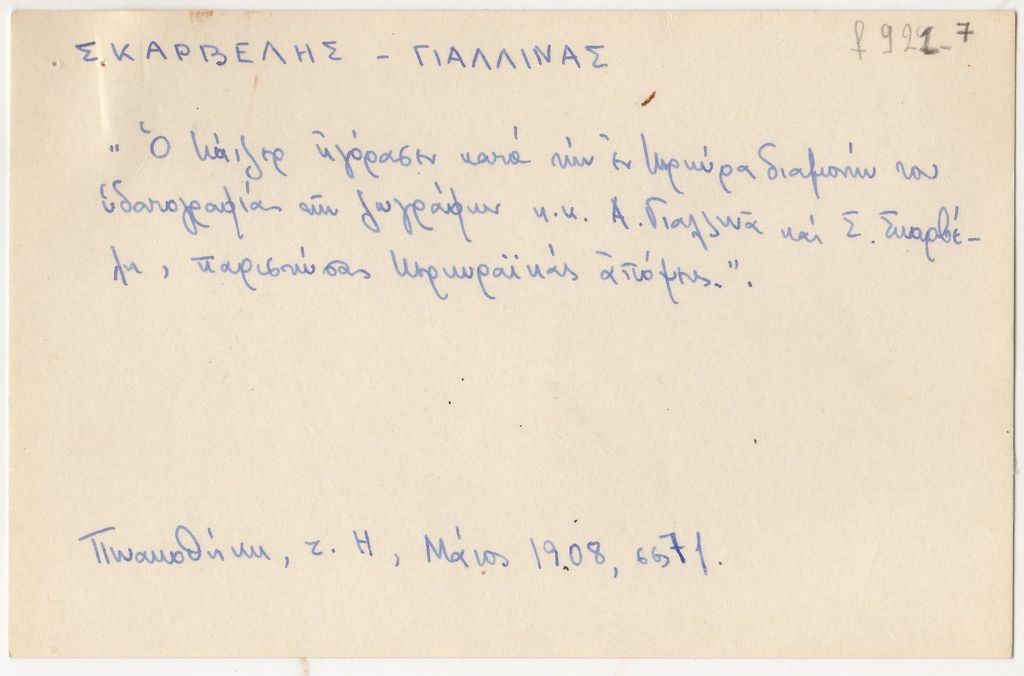 ΣΚΑΡΒΕΛΗΣ - ΓΙΑΛΛΙΝΑΣ
f 921 7
"Ὁ Κάιζερ ἠγόρασεν κατά τήν ἐν Κερκύρα διαμονήν του
ὑδατογραφίας τῶν ζωγράφων κ.κ. Α. Γιαλλινᾶ καί Σ. Σκαρβέ-
λη, παριστώσας Κερκυραϊκάς ἀπόψεις.".
Πινακοθήκη, τ. Η, Μάιος 1908, σσ 71.